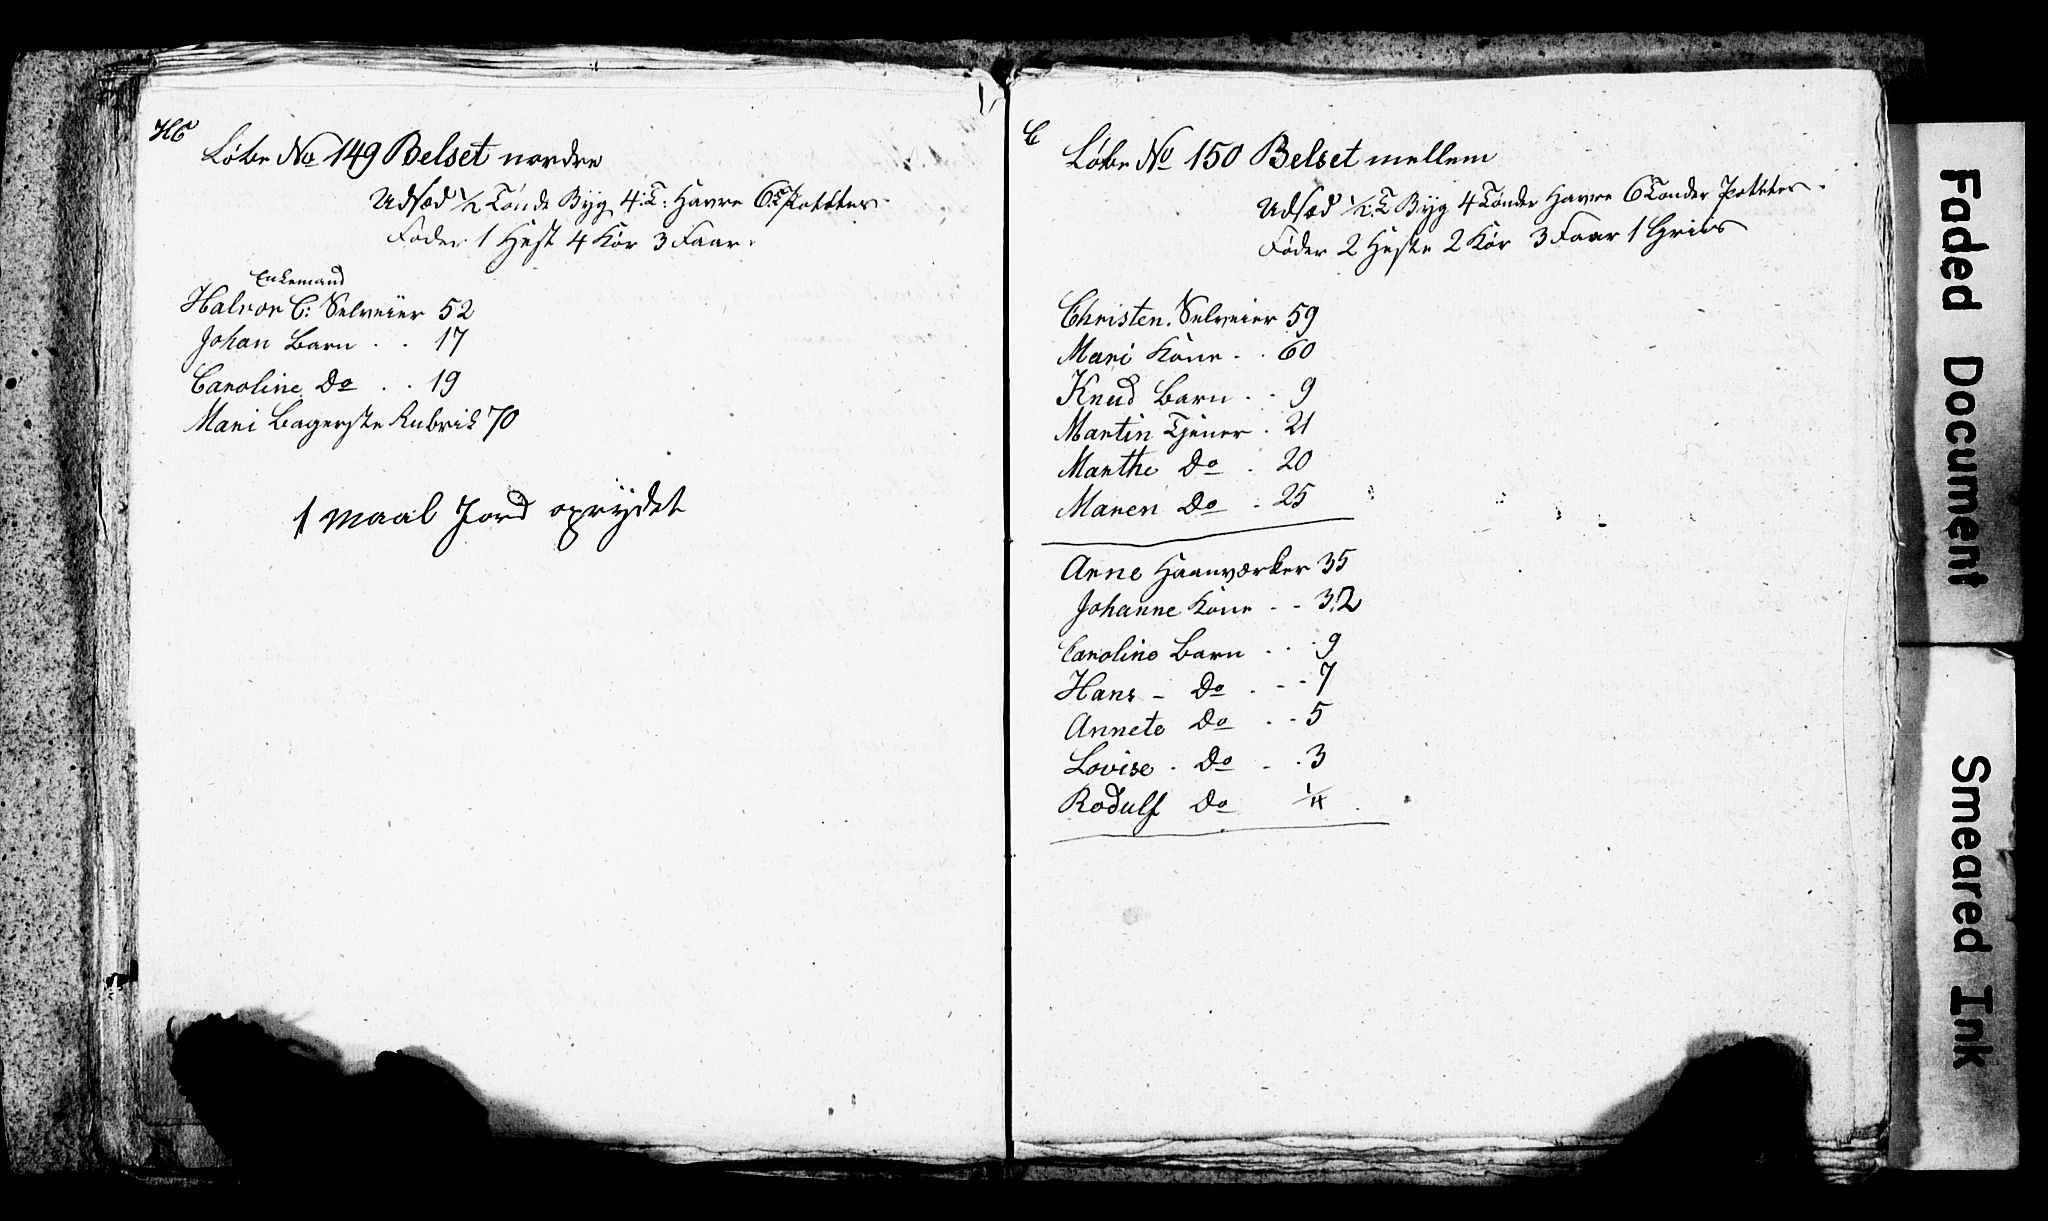 HC
Løbe No 149 Belset nordre
Udsæd 1/2 Tønde Byg 4: T: Havre 6 T Potetter
Føder 1 Hest 4 Kör 3 Faar.
Enkemand
Halvor C: Selveier 52
Johan Barn . . 17
Caroline Do . . 19
Mari Bagerste Rubrik 70
1 Maal Jord oprydet
C
Løbe No 150 Belset mellem
Udsæd 1/2 T Byg 4 Tönder Havre 6 Tønder Potetter.
Föder 2 Heste 2 Kör 3 Faar 1 Griis
Christen. Selveier 59
Mari Kone . . 60
Knud Barn . . 9
Martin Tjener . 21
Marthe Do . 20
Maren Do . 25
Arne Haanværker 35
Johanne Kone . . 32
Caroline Barn . . 9
Hans - Do . - - 7
Annete Do . . 5
Lovise . Do . . 3
Rodulf Do 1/4
Faded Document
Smeared Ink